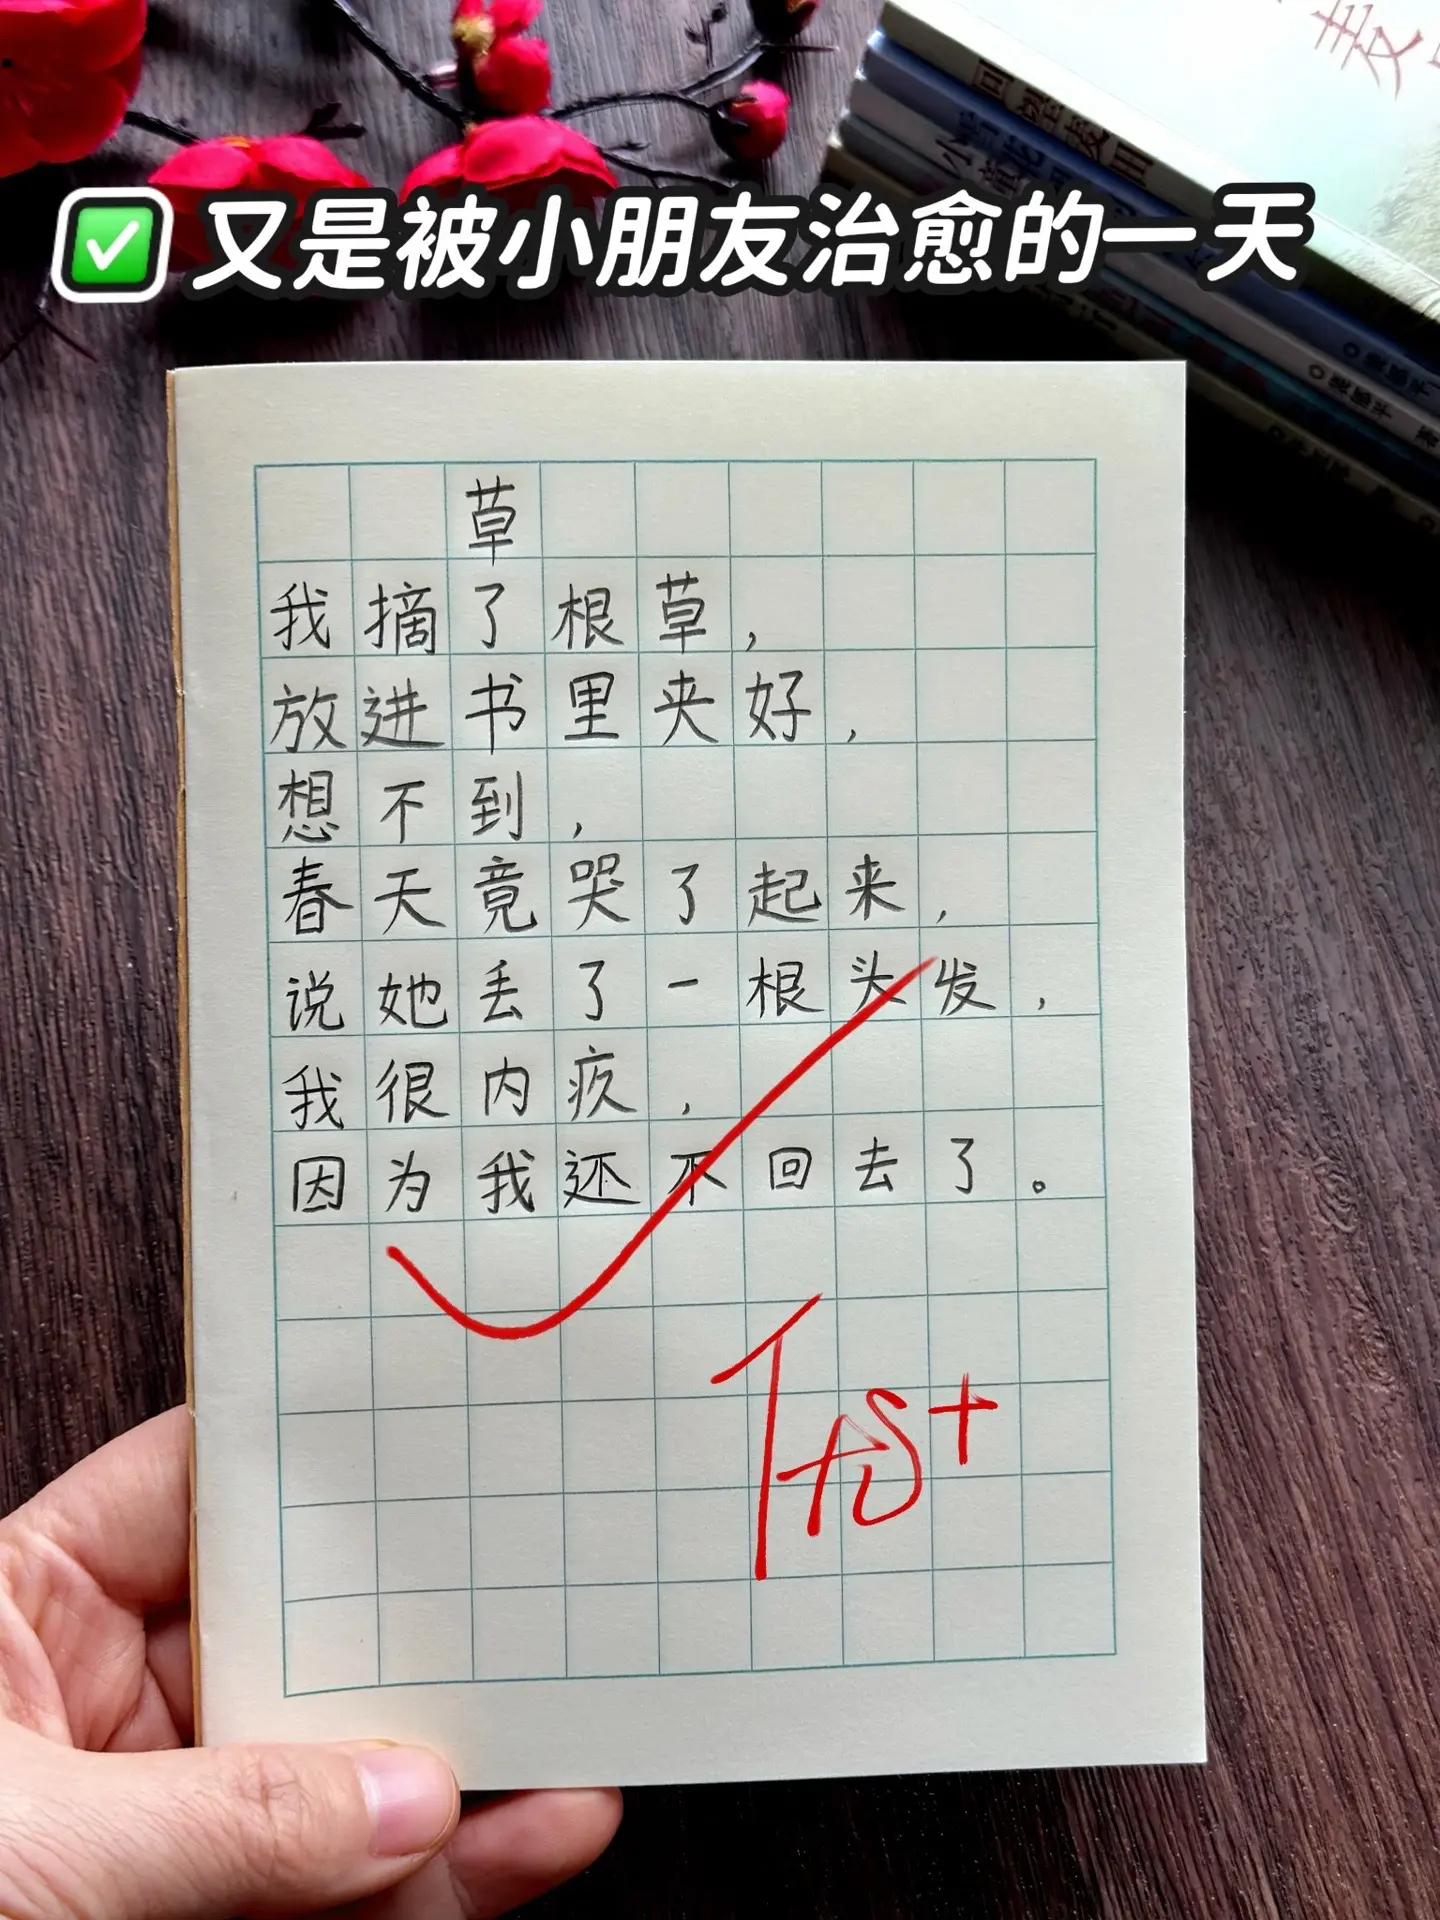 ✅ 又是被小朋友治愈的一天
草
我摘了根草，
放进书里夹好，
想不到，
春天竟哭了起来，
说她丢了一根头发，
我很内疚，
因为我还不回去了。